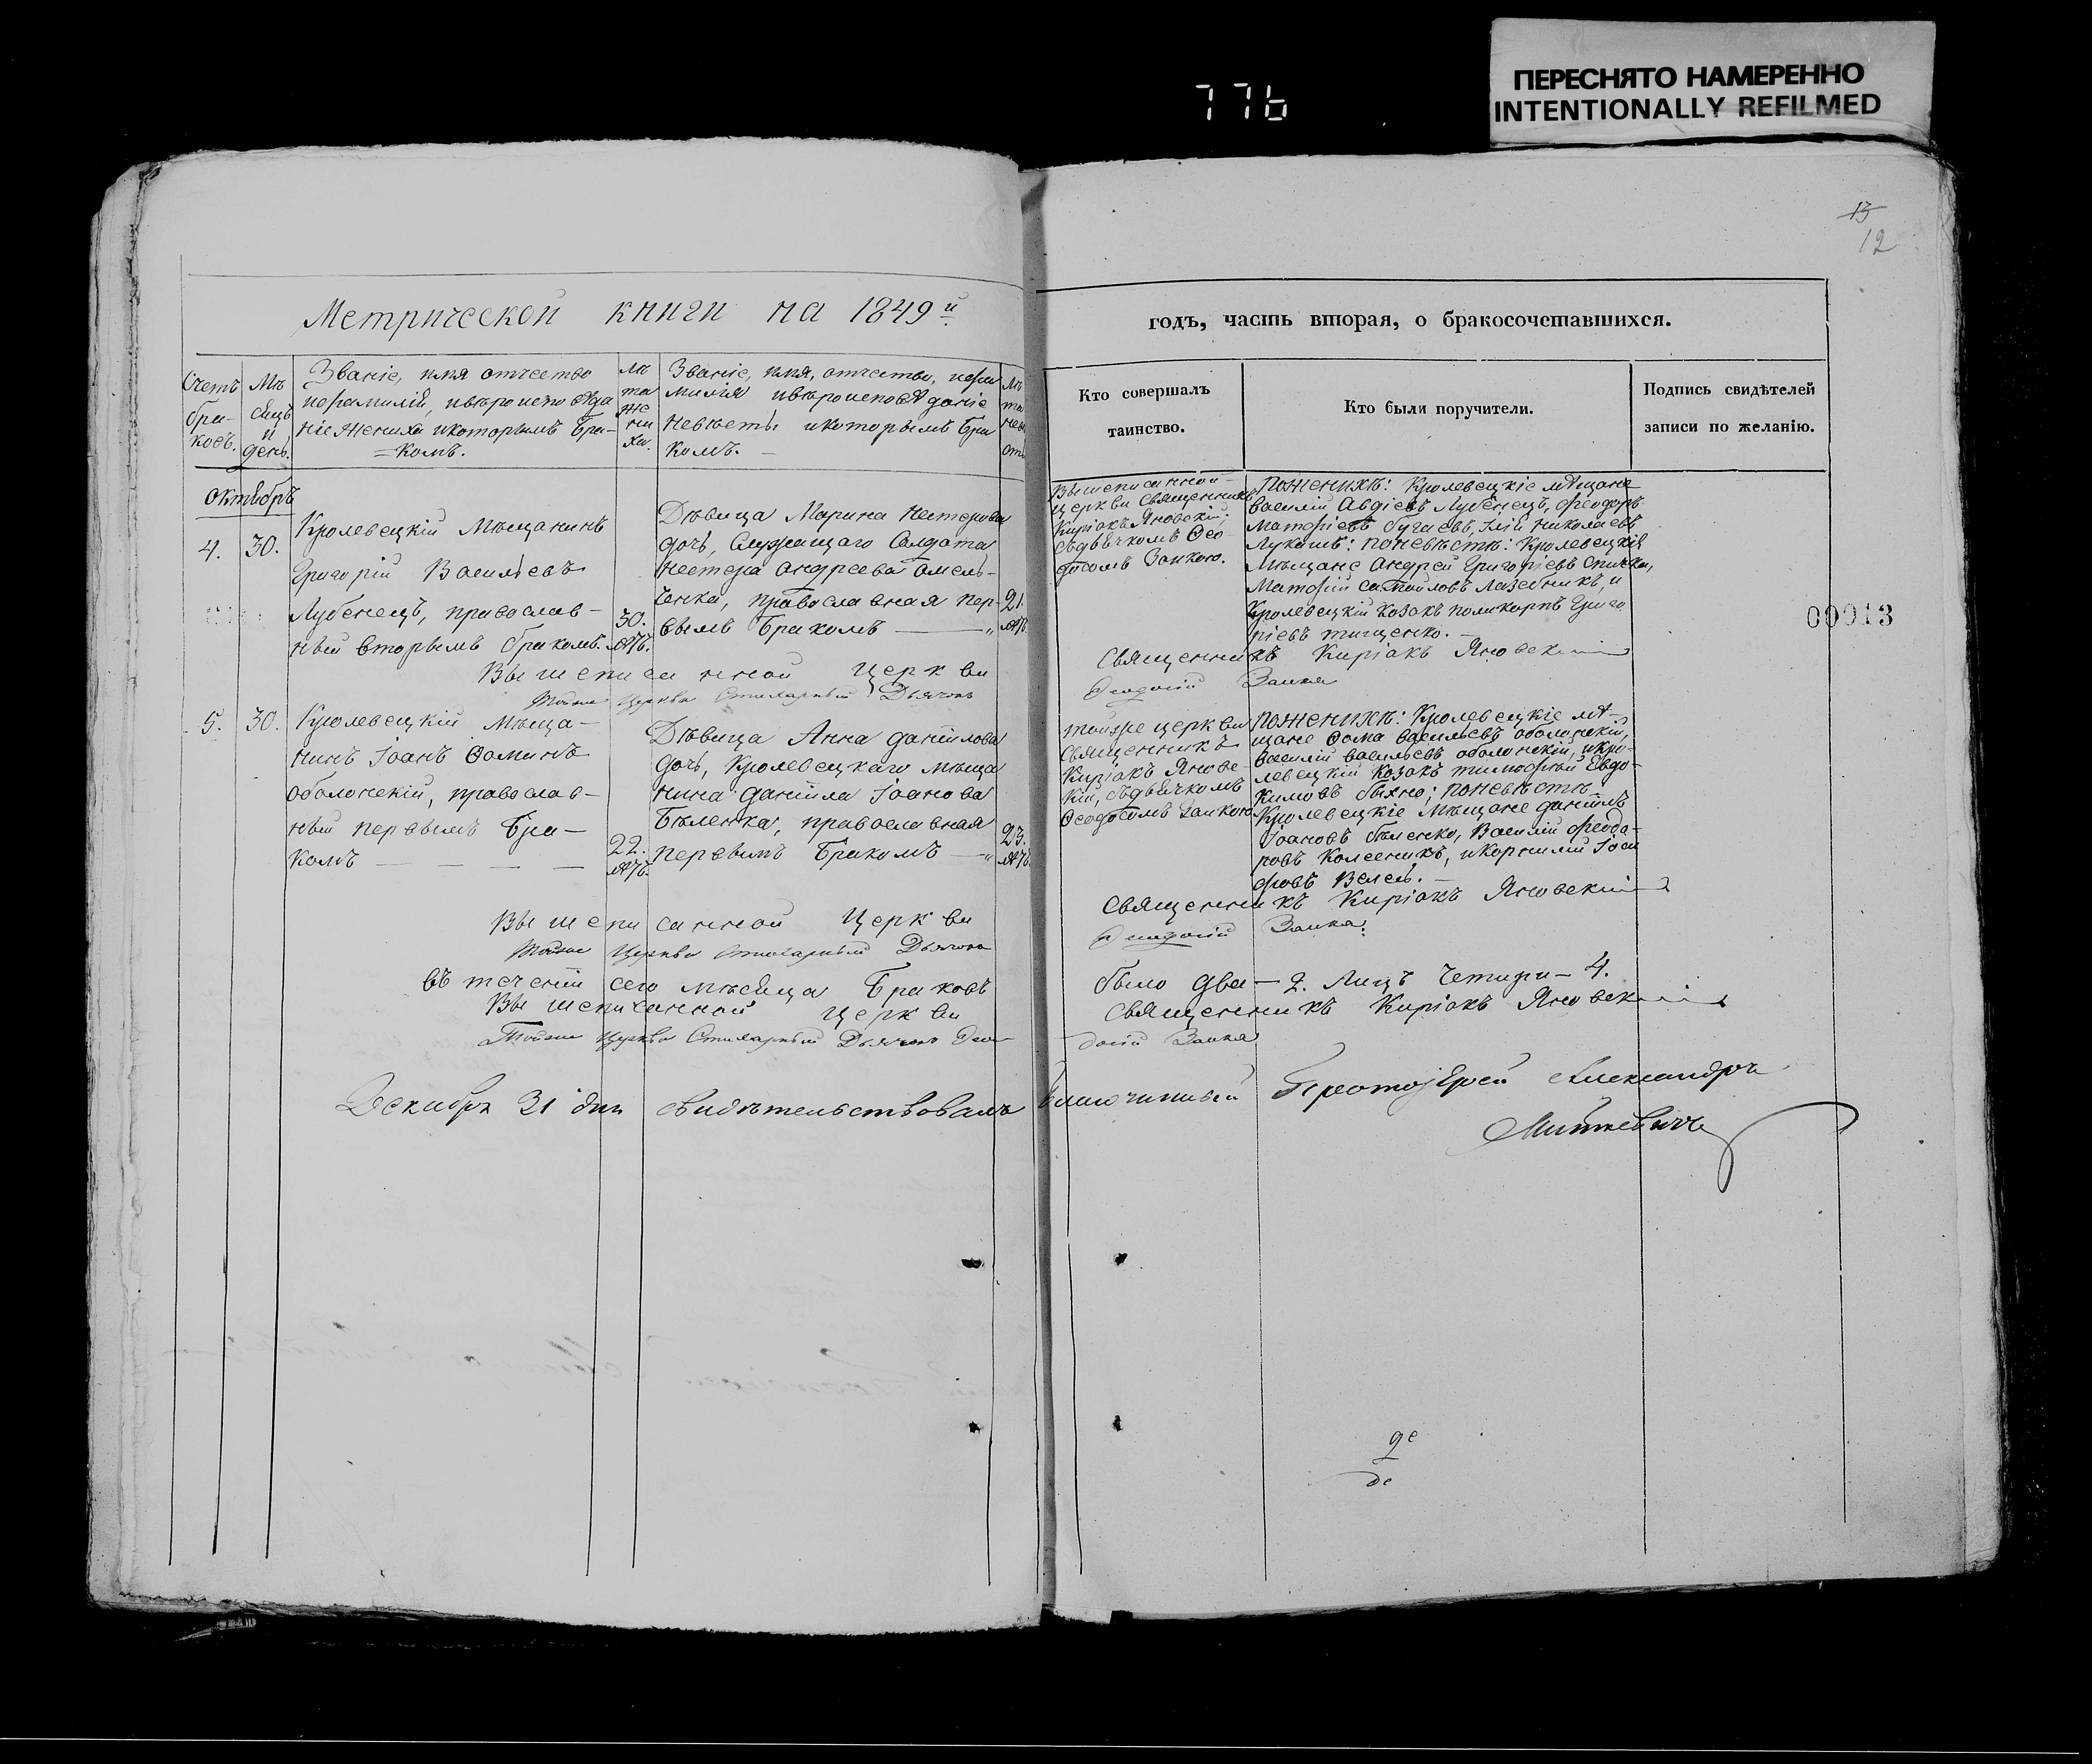 776
ПЕРЕСНЯТО НАМЕРЕННО
INTENTIONALLY REFILMED
13
12
Метрической книги на 1849й
Счетъ бра-ковъ.
Мѣ сяцъ и день.
Званіе, имя отчество
ифамилій, ивѣроисповѣда
ніе жениха икоторымъ Бра-
комъ.
лѣ та же ни ха.
Званіе, имя, отчество, ифа
милія ивѣроисповѣданіе
невѣсты икоторымъ Бра
комъ.
годъ, часть вторая, о бракосочетавшихся.
Кто совершалъ
таинство.
Кто были поручители.
Подпись свидѣтелей
записи по желанію.
октябрь
4. 30.
Кролевецкій Мѣщанинъ
Григорій Васильевъ
Лубенецъ, православ-
ный вторымъ бракомъ.
30.
лѣтъ.
Дѣвица Марина Нестерова
дочь, Служащаго Солдата
Нестера Андреева Омель-
ченка, православная пер-
вымъ Бракомъ
21.
лѣтъ
Вышеписанной
церкви Священникъ
Киріакъ Яновскій;
съдьячкомъ Ѳео-
досомъ Заикою.
Поженихѣ: Кролевецкіе мѣщане
Василій Авдіевъ Лубенецъ, Феодоръ
Матфіевъ Бугаевъ, Илій Николаевъ
Лукашъ: поневѣстѣ: Кролевецкія
Мѣщане Андрей Григоріевъ Спичка,
Матфій Самойловъ Лазебникъ, и
Кролевецкій Козакъ поликарпъ Григо
ріевъ тищенко.
Вышеписанной Церкви Священникъ Киріакъ Яновскій
Тойже Церкви Стихарный Дьячокъ Феодосій Заика
5. 30.
Кролевецкій Мѣща-
нинъ Іоанъ Ѳоминъ
оболонскій, православ-
ный первымъ Бра-
комъ
22.
лѣтъ.
Дѣвица Анна даніилова
дочь, Кролевецкаго мѣща
нина даніила Іоанова
Бѣленка, православная
первымъ Бракомъ
23.
лѣтъ.
тойже церкви
Священникъ
Киріакъ Яновс-
кій, съдьячкомъ
Ѳеодосомъ Заикою
поженихѣ: Кролевецкіе мѣ-
щане Ѳома Васильевъ оболонскій,
Василій Васильевъ оболонскій, икро-
левецкій Козакъ тимофѣй Евдо-
кимовъ; поневѣстѣ
Кролевецкіе Мѣщане даніилъ
Іоановъ бѣленко, Василій Феодо-
ровъ Колесникъ, икорнилій Іоси
фовъ
Вышеписанной Церкви Священникъ Киріакъ Яновскій
Тойже Церкви Стихарный Дьячокъ Феодосій Заика.
въ теченіи сего мѣсяца Браковъ было два — 2. Лицъ Четири — 4.
Вышеписанной церкви Священникъ Киріакъ Яновскій
Тойже Церкви Стихарный Дьячокъ Фео-досій Заика
Декабря 31 дня свидѣтельствовалъ Благочинный Протоіерей Александръ
Миткевичъ
00013